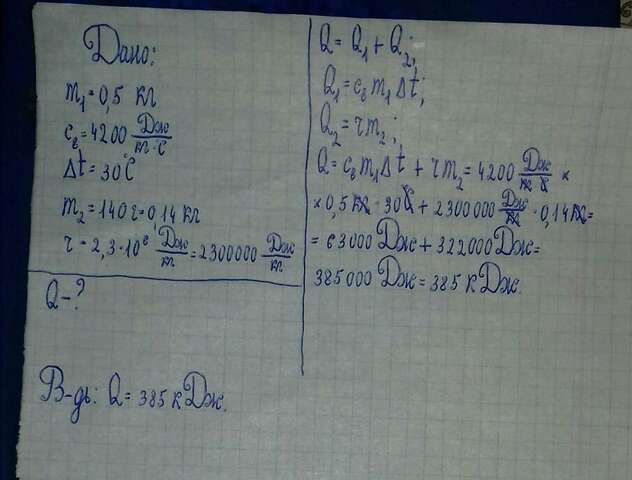 Дано:
m₁=0,5 кг
cв=4200 Дж/кг·С
Δt=30°С
m₂=140г=0,14 кг
r=2,3·10⁶ Дж/кг=2300000 Дж/кг
Q-?
В-дь: Q=385кДж.
Q=Q₁+Q₂;
Q₁=cв m₁Δt;
Q₂=rm₂;
Q=cв m₁Δt+rm₂=4200 Дж/кг·С ×
×0,5кг·30С+2300000 Дж/кг·0,14кг=
=63000Дж+322000Дж=
385000Дж=385кДж.